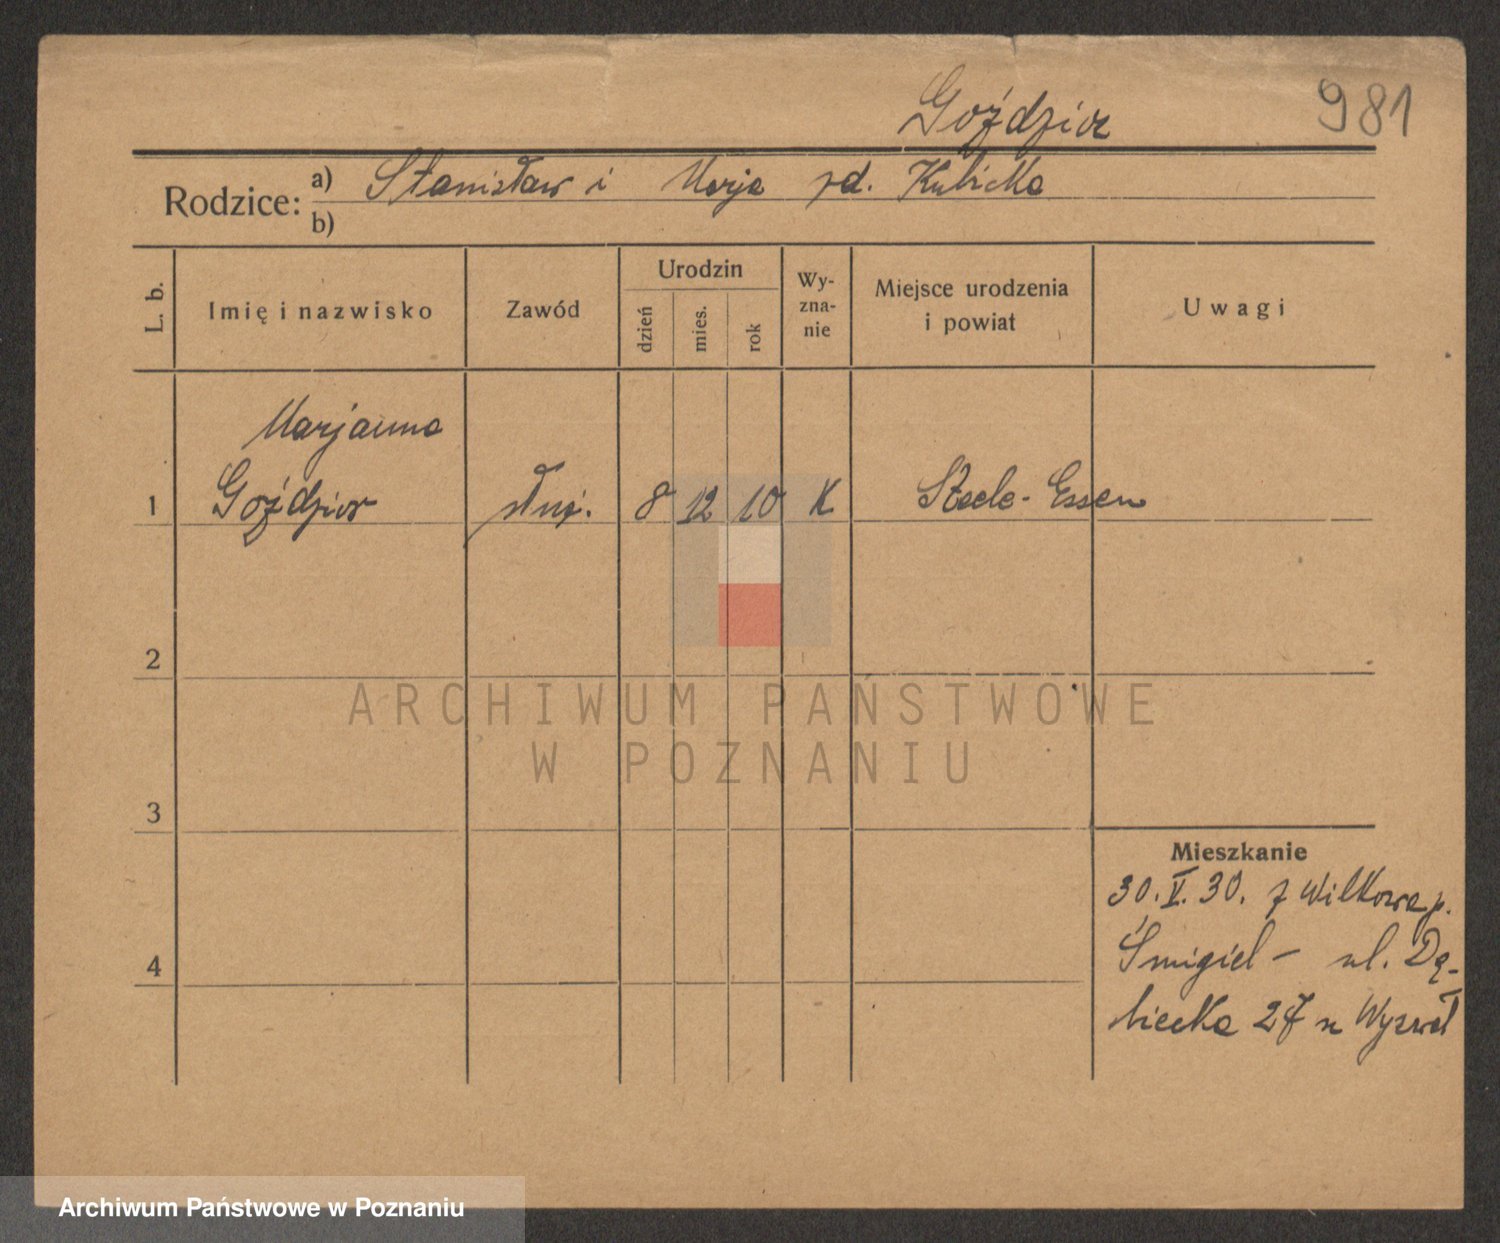 Goździor 981
Rodzice: a) Stanisław i Marja zd. Kubicka
b)
L. b.
Imię i nazwisko
Zawód
Urodzin
dzień
mies.
rok
Wy-
zna-
nie
Miejsce urodzenia
i powiat
Uwagi
Marjanna
1 Goździor służ. 8 12 10 K Steele-Essen
2
ARCHIWUM PAŃSTWOWE
W POZNANIU
3
Mieszkanie
30.V.30. z Wilkowa p.
4 Śmigiel - ul. Dą-
biecka 27 u
Archiwum Państwowe w Poznaniu